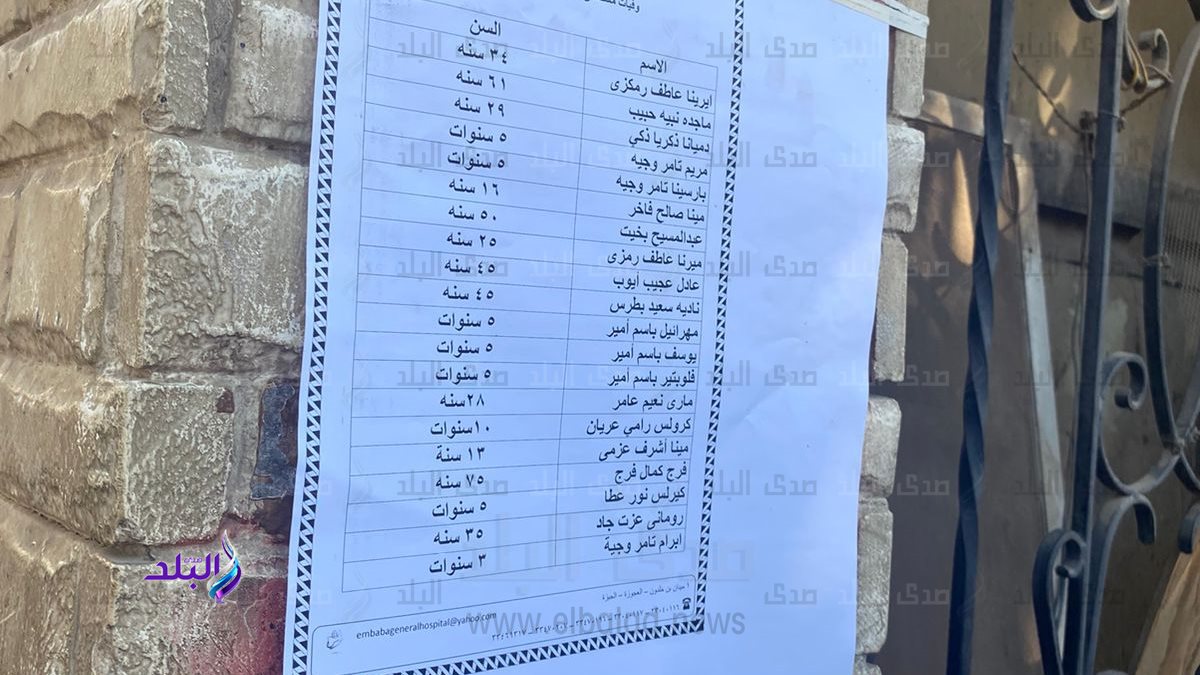 وفيات
الاسم السن
ايرينا عاطف رمكزى ٣٤ سنه
ماجده نبيه حبيب ٦١ سنه
دميانا ذكريا ذكي ٢٩ سنه
مريم تامر وجيه ٥ سنوات
بارسينا تامر وجيه ٥ سنوات
مينا صالح فاخر ١٦ سنه
عبدالمسيح بخيت ٥٠ سنه
ميرنا عاطف رمزى ٢٥ سنه
عادل عجيب أيوب ٤٥ سنه
ناديه سعيد بطرس ٤٥ سنه
مهرائيل باسم أمير ٥ سنوات
يوسف باسم أمير ٥ سنوات
فلوبتير باسم أمير ٥ سنوات
مارى نعيم عامر ٢٨سنه
كرولس رامي عريان ١٠سنوات
مينا أشرف عزمى ١٣ سنة
فرج كمال فرج ٧٥ سنه
كيرلس نور عطا ٥ سنوات
رومانى عزت جاد ٣٥ سنه
ابرام تامر وجية ٣ سنوات
العجوزة – الجيزة
embabageneralhospital@yahoo.com
صدى البلد
www.elbalad.news